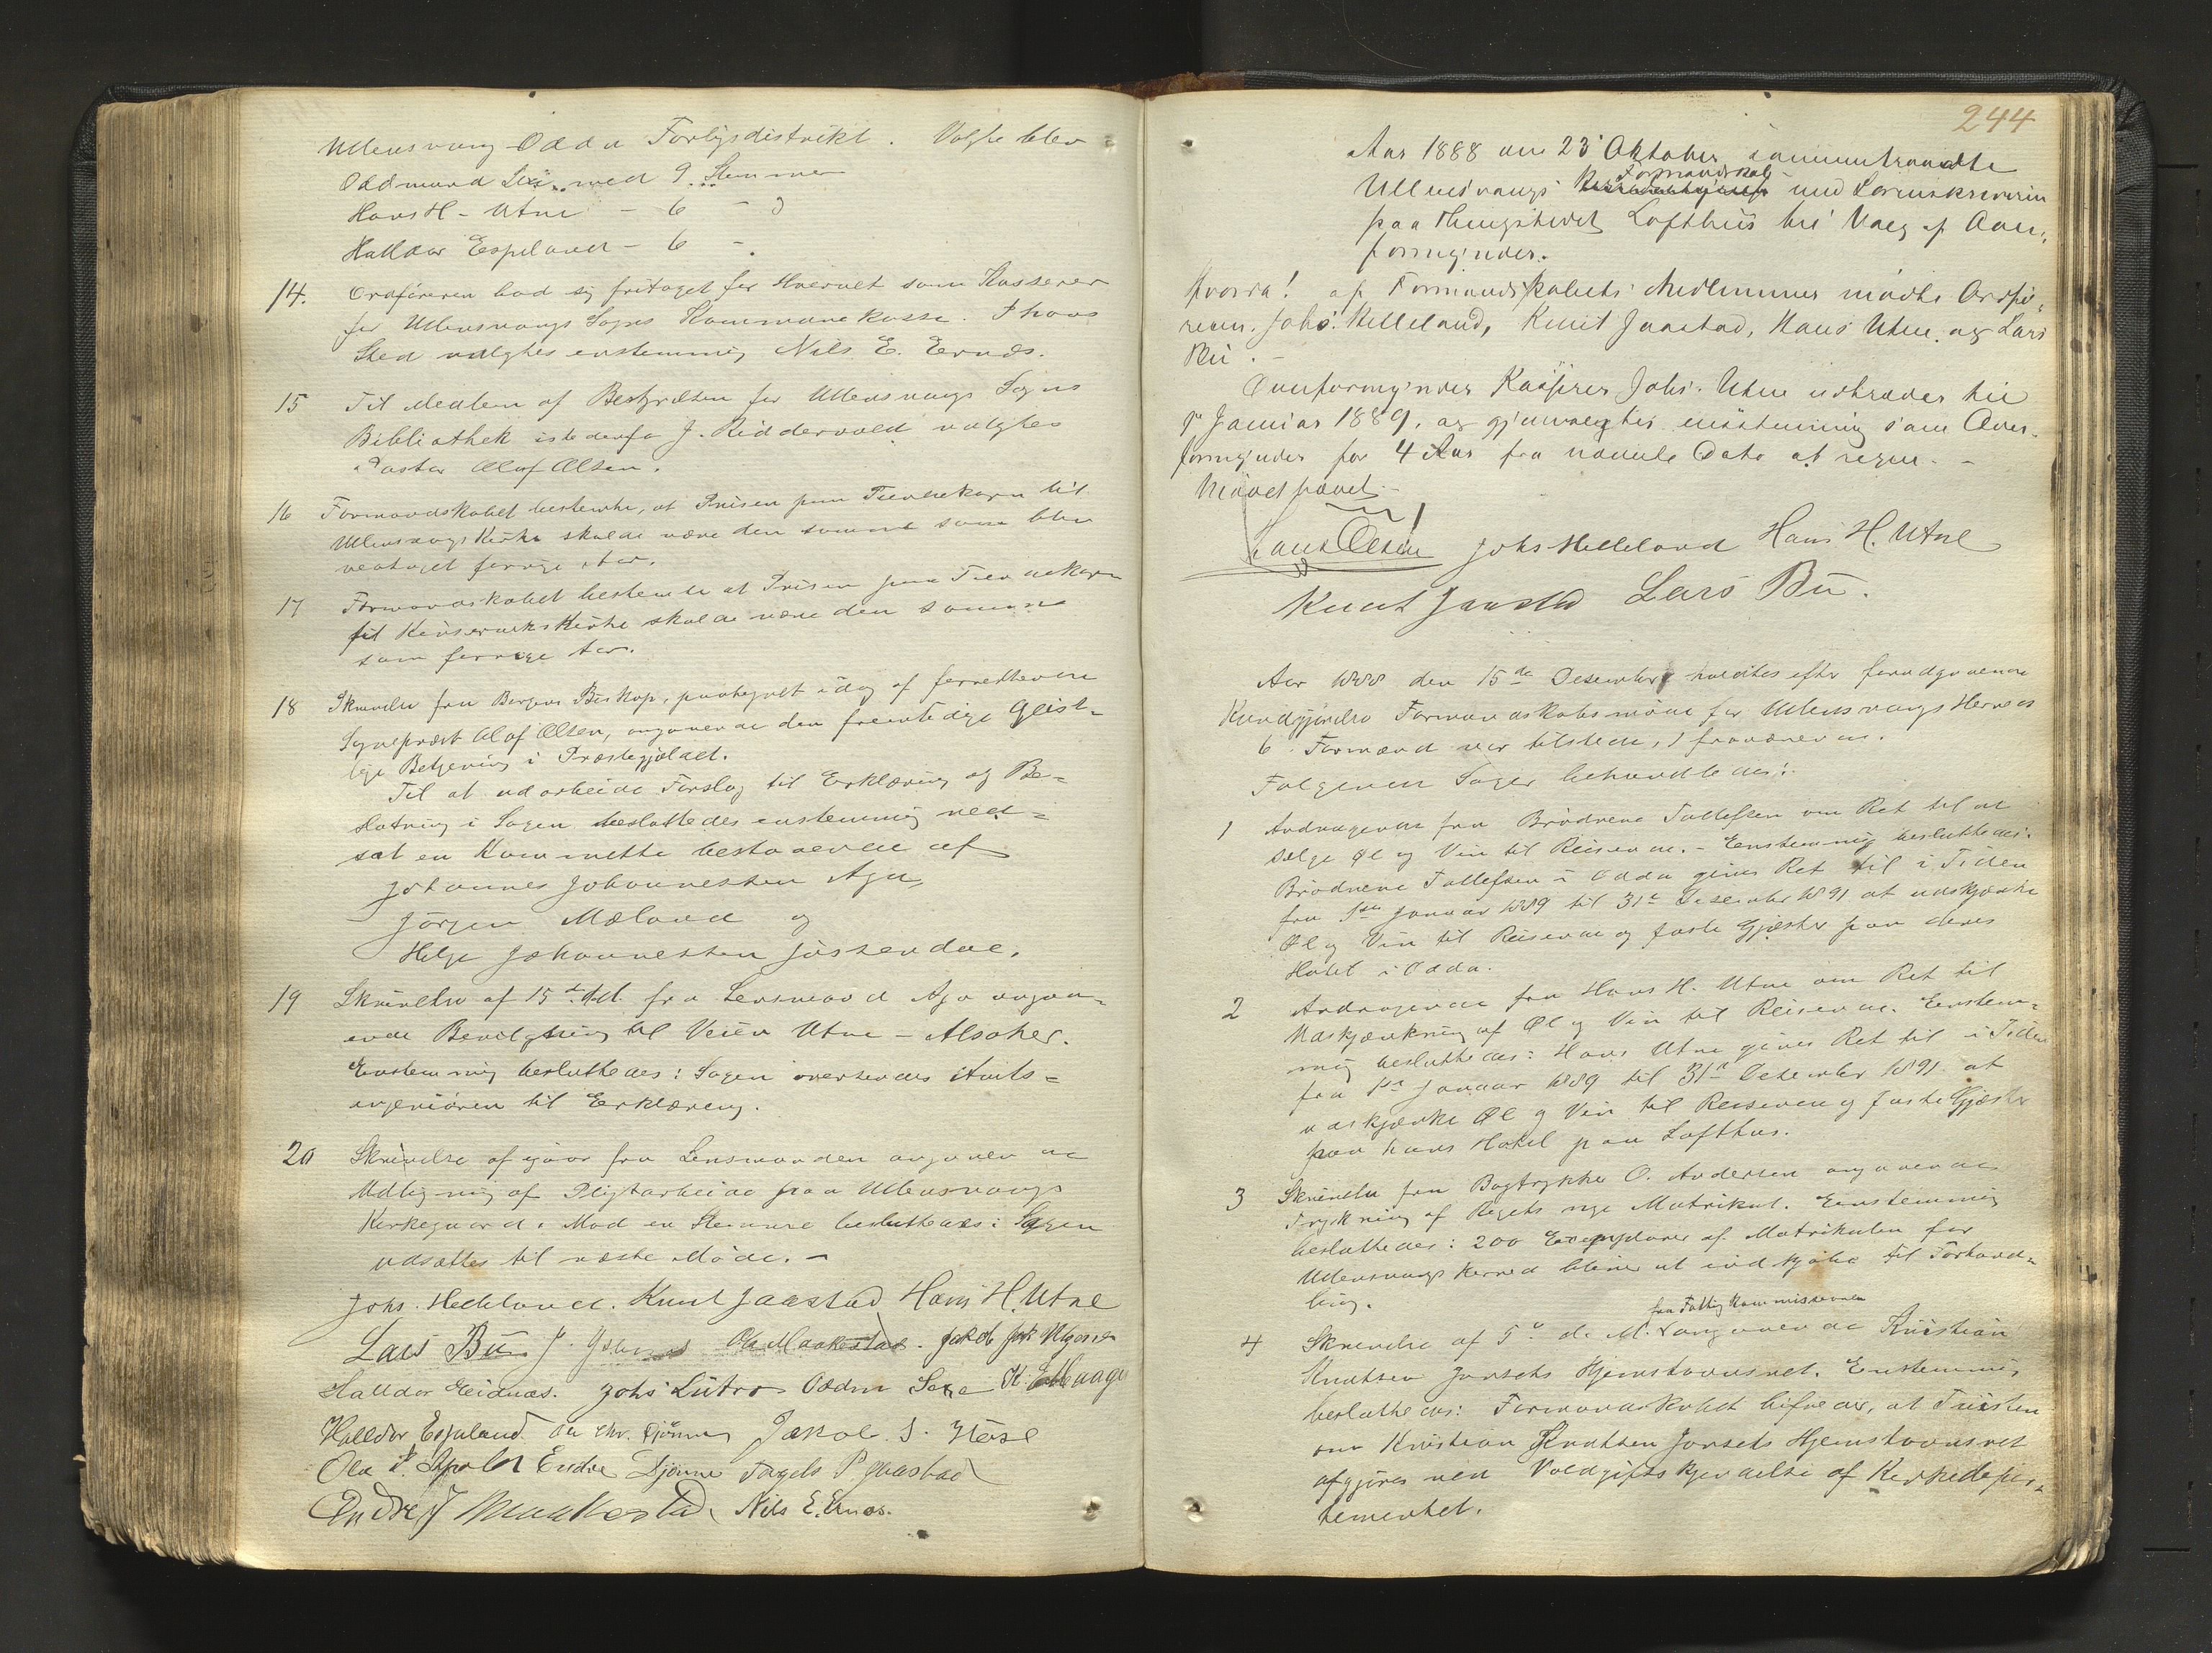 Ullensvang-Odda Forligsdistrikt. Valgte blev
Oddmund Sexe med 9 Stemmer
Hans H. Utne - 6 - "
Halldor Espeland - 6 -
14. Ordføreren bad sig fritaget for Hvervet som Kasserer
for Ullensvangs Sogns Kommunekasse. I hans
Sted valgtes enstemmig Nils E. Ernæs.
15 Til Medlem af Bestyrelsen for Ullensvangs Sogns
Bibliothek istedenfor J. Riddervold valgtes
Pastor Olaf Olsen.
16 Formandskabet bestemte, at Prisen paa Tiendekorn til
Ullensvangs Kirke skulde være den samme som blev
vedtaget forrige Aar.
17 Formandskabet bestemte at Prisen paa Tiendekorn
til Kinserviks Kirke skulde være den samme
som forrige Aar.
18 Skrivelse fra Bergens Biskop, paategnet idag af ferretterende
Sogneprest Olaf Olsen, angaaende den fremtidige geist-
lige Betjening i Præstegjeldet.
Til at udarbeide Forslag til Erklæring og Be-
slutning i Sagen besluttedes enstemmig ned-
sat en Kommitte bestaaende af
Johannes Johannessen Aga,
Jørgen Mæland og
Helge Johannessen Jøssendal.
19 Skrivelse af 15de ds. fra Lensmand Aga angaa-
ende Bevilgning til Veien Utne - Alsaker.
Enstemmig besluttedes: Sagen oversendes Amts-
ingeniøren til Erklæring.
20 Skrivelse af igaar fra Lensmanden angaaende
Udligning af Pligtarbeide paa Ullensvangs
Kirkegaard. Mod en Stemme besluttedes: Sagen
udsættes til næste Møde. -
Johs. Helleland. Knut Jaastad Hans H. Utne
Lars Bu J. Ola Maakestad. Jakob
Halldor Eidnæs. Johs Lutro Oddm Sexe K.
Halldor Espeland Ola Chr. Djønne Jakob J. Høse
Ola Endre Djønne Torgels P Jaastad
Endre J Maakestad Nils E. Ernæs.
244
Aar 1888 den 23 Oktober sammentraadte
Formandskab
Ullensvangs med Sorenskriveren
paa Thingstedet Lofthus til Valg af Over-
formynder.
Hvorda! af Formandskabets Medlemmer mødte Ordfø-
reren. Johs. Helleland, Knut Jaastad, Hans Utne og Lars
Bu. -
Overformynder Kasserer Johs. Utne udtræder til
1ste Januar 1889, og gjenvalgtes enstemmig som Over-
formynder for 4 Aar fra nævnte Dato at regne. -
Mødet hævet. -
Johs Helleland Hans H. Utne
Knut Jaastad Lars Bu.
Aar 1888 den 15de Desember holdtes efter forudgaaende
Kundgjørelse Formandskabsmøde for Ullensvangs Herred
6 Formænd var tilstede, 1 fraværende.
Følgende Sager behandledes:
1 Andragende fra Brødrene Tollefsen om Ret til at
sælge Øl og Vin til Reisende. - Enstemmig besluttedes:
Brødrene Tollefsen i Odda gives Ret til i Tiden
fra 1ste Januar 1889 til 31te Desember 1891 at udskjænke
Øl og Vin til Reisende og faste Gjæster paa deres
Hotel i Odda.
2 Andragende fra Hans H. Utne om Ret til
Udskjænkning af Øl og Vin til Reisende. Enstem-
mig besluttedes: Hans Utne gives Ret til i Tiden
fra 1ste Januar 1889 til 31te Desember 1891 at
udskjænke Øl og Vin til Reisende og faste Gjæster
paa hans Hotel paa Lofthus.
3 Skrivelse fra Bogtrykker O. Andersen angaaende
Trykning af Rigets nye Matrikul. Enstemmig
besluttedes: 200 Exemplarer af Matrikulen for
Ullensvangs Herred bliver at indkjøbe til Forhand-
ling.
fra Fattigkommissionen
4 Skrivelse af 5te d. M. angaaende Kristian
Knudsen Jorsets Hjemstavnsret. Enstemmig
besluttedes: Formandskabet bifalder, at Tvisten
om Kristian Knudsen Jorsets Hjemstavnsret
afgjøres ved Voldgiftskjendelse af Kirkedepar-
tementet.